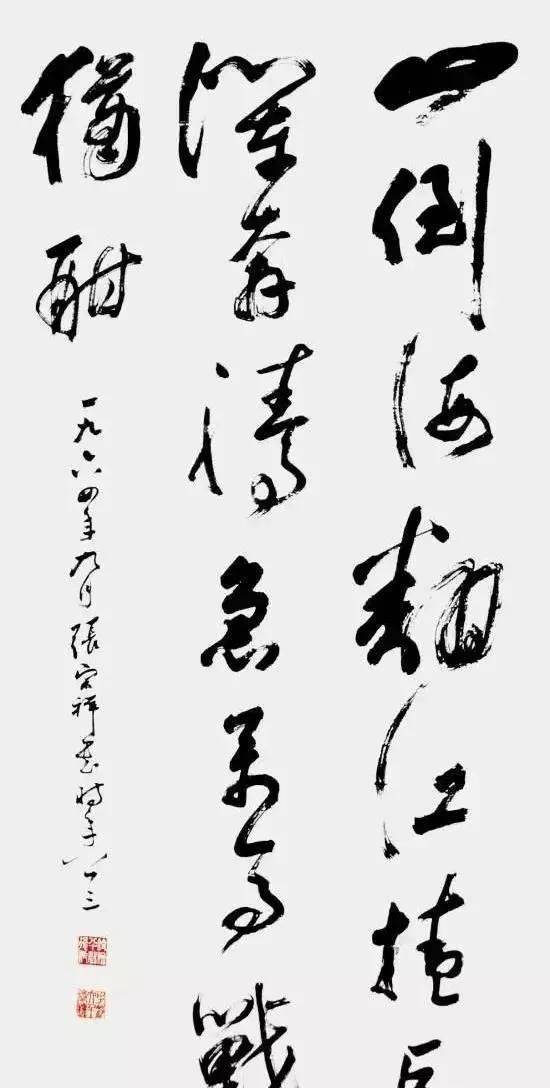 山倒海翻江捲巨
瀾奔騰急萬馬戰
猶酣
一九六四年九月張宗祥書時年八十三